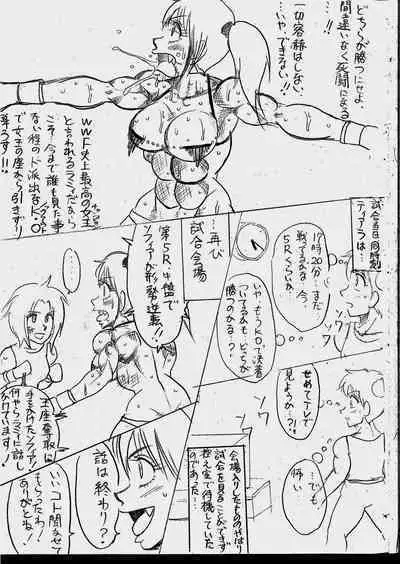 どちらが勝つにせよ、
間違いなく死闘になる
一切容赦はしない、
…いや、できない!!
WWF史上最高の女王
と言われるラミアだから
こそ…今まで誰も見た事
ない程のド派出なK.O
で女王の座から引きずり
試合当日同時刻
ティアラは…
17時20分…まだ
戦ってるかな…今、
5Rくらいか…
いや、もうKOで決着
ついてるかも…どっちが
勝つのかな…??
ソワ
ソワ
…再び
試合会場
第5R、中盤で
ソフィアが形勢逆転!!
王座奪取に
手をかけたソフィア!
何やらラミアに話し
かけています!
せめてテレビで
見ようか…?!
…でも
怖い
会場入りしたものの、やはり
試合を見ることができず
控え室で待機していた
のであった…
話は終わり?
いいコト聞かせて
もらったわ!
ありがとね!